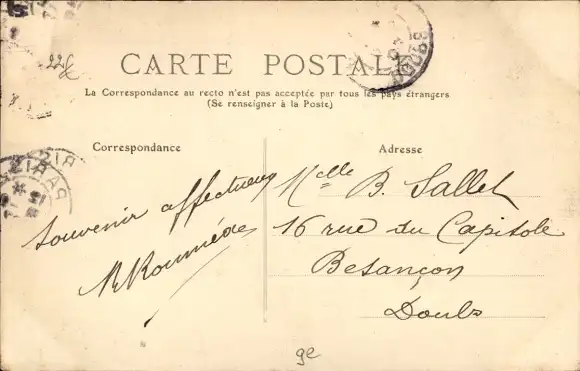 22f
CARTE POSTALE
La Correspondance au recto n'est pas acceptée par tous les pays étrangers
(Se renseigner à la Poste)
Correspondance
Adresse
Souvenir affectueux
Melle B. Sallet
16 rue du Capitole
Besançon
Doubs
PARIS
ge